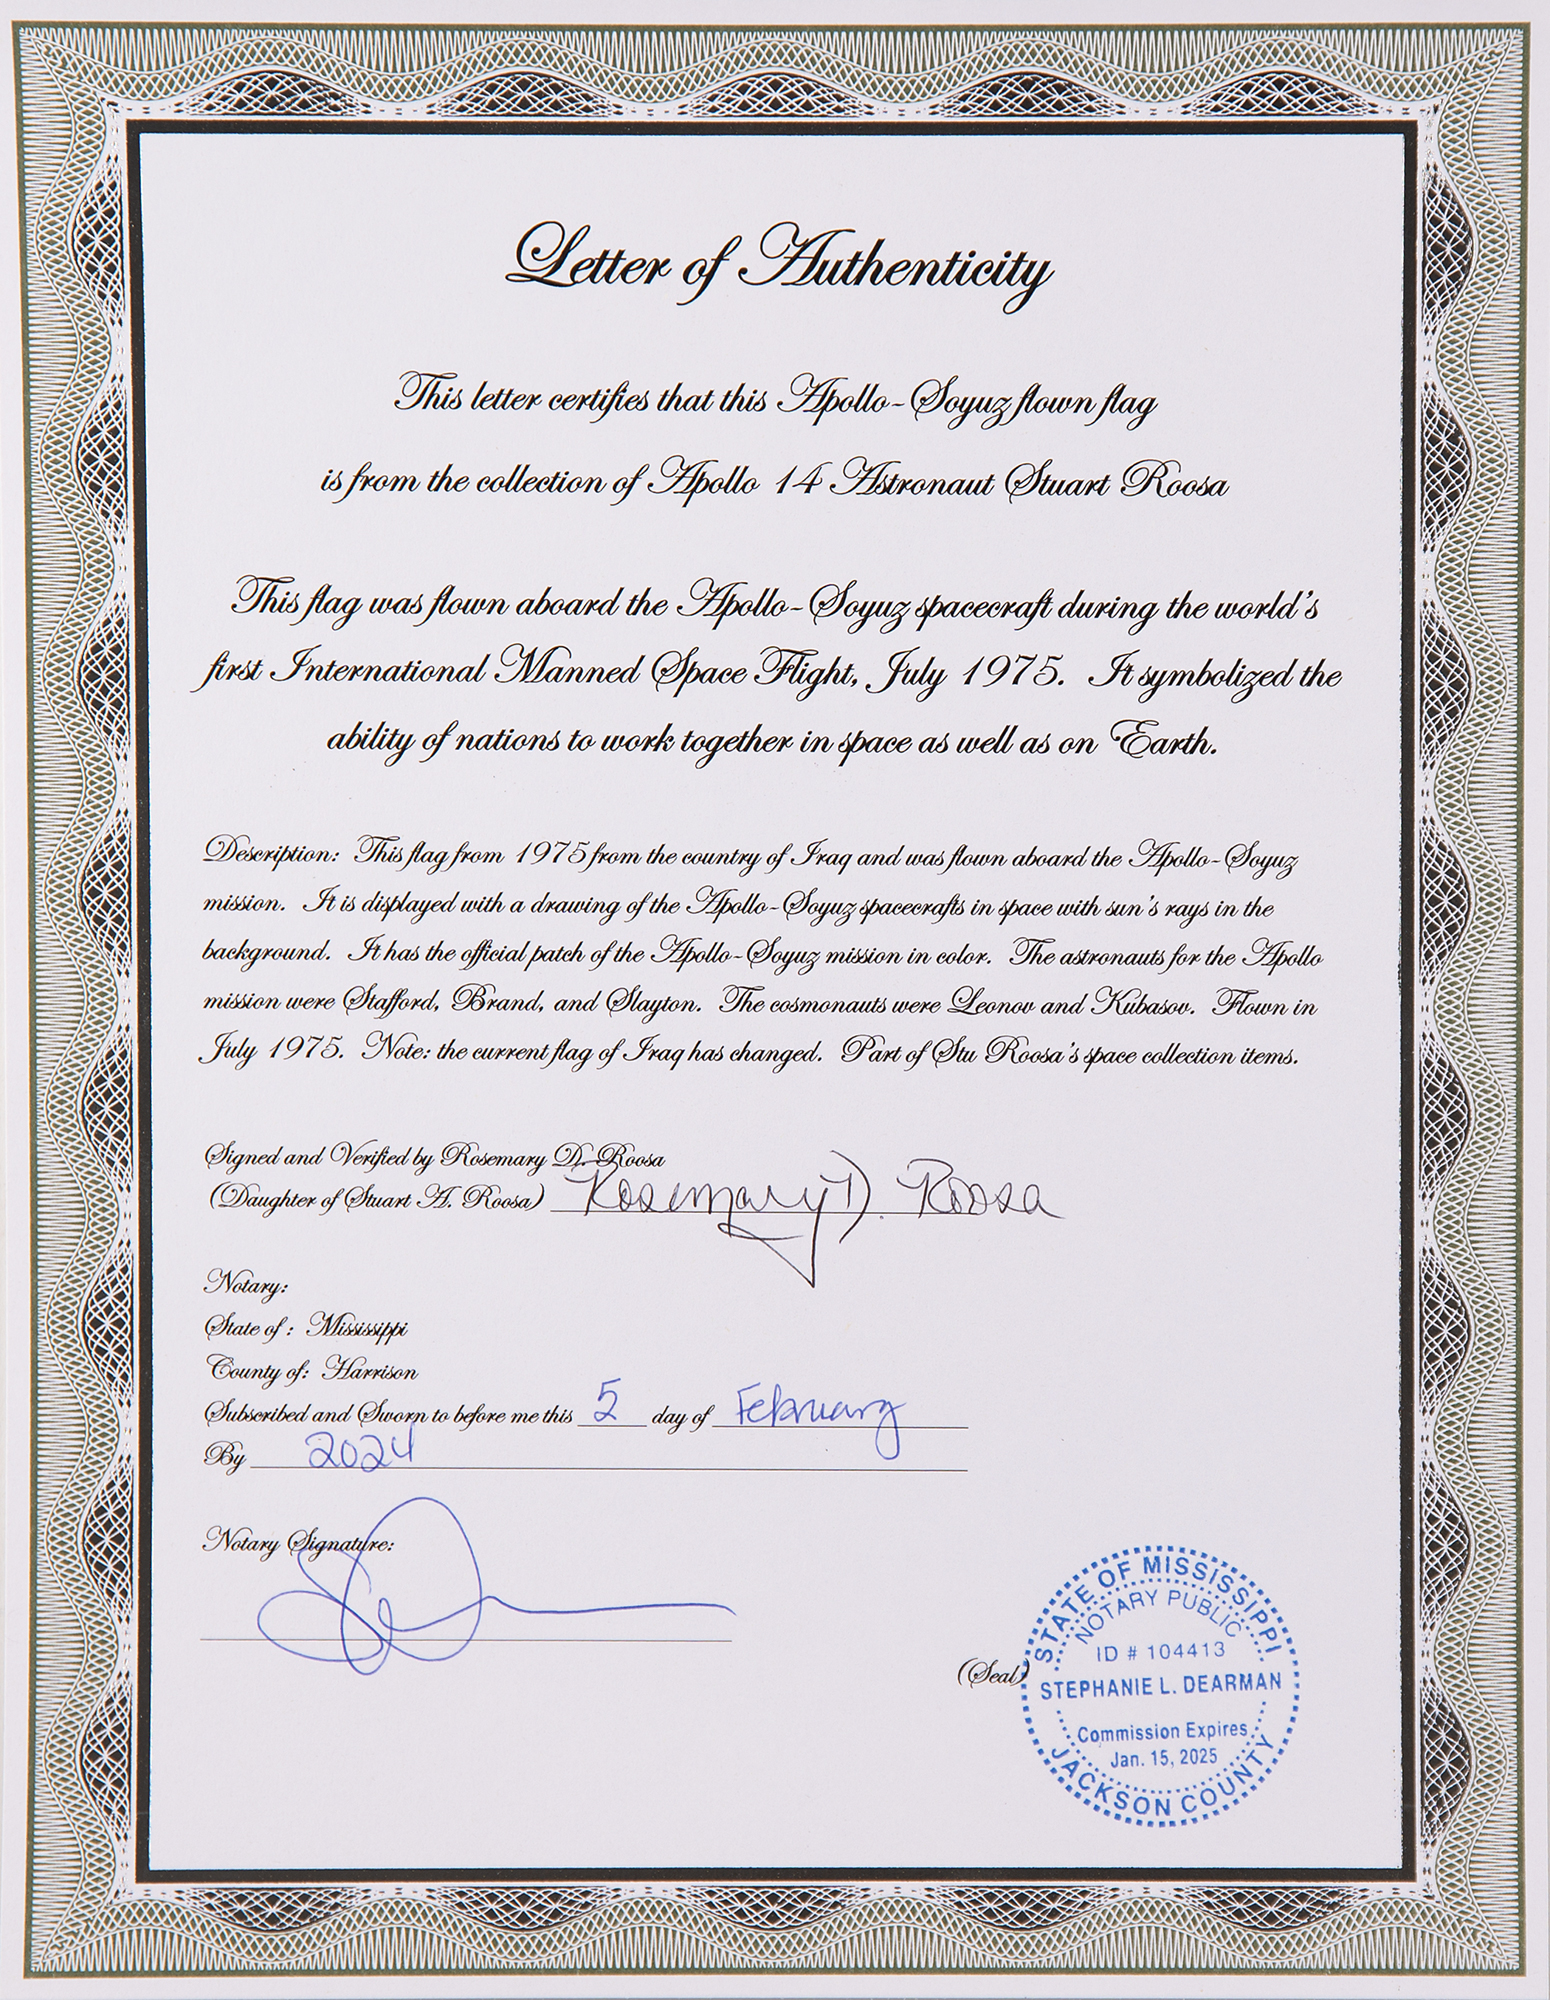 Letter of Authenticity
This letter certifies that this Apollo-Soyuz flown flag
is from the collection of Apollo 14 Astronaut Stuart Roosa
This flag was flown aboard the Apollo-Soyuz spacecraft during the world's
first International Manned Space Flight, July 1975. It symbolized the
ability of nations to work together in space as well as on Earth.
Description: This flag from 1975 from the country of Iraq and was flown aboard the Apollo-Soyuz
mission. It is displayed with a drawing of the Apollo-Soyuz spacecrafts in space with sun's rays in the
background. It has the official patch of the Apollo-Soyuz mission in color. The astronauts for the Apollo
mission were Stafford, Brand, and Slayton. The cosmonauts were Leonov and Kubasov. Flown in
July 1975. Note: the current flag of Iraq has changed. Part of Stu Roosa's space collection items.
Signed and Verified by Rosemary D. Roosa
(Daughter of Stuart A. Roosa) Rosemary D. Roosa
Notary:
State of : Mississippi
County of: Harrison
Subscribed and Sworn to before me this 5 day of February
By 2024
Notary Signature:
(Seal)
STATE OF MISSISSIPPI
NOTARY PUBLIC
ID # 104413
STEPHANIE L. DEARMAN
Commission Expires
Jan. 15, 2025
JACKSON COUNTY